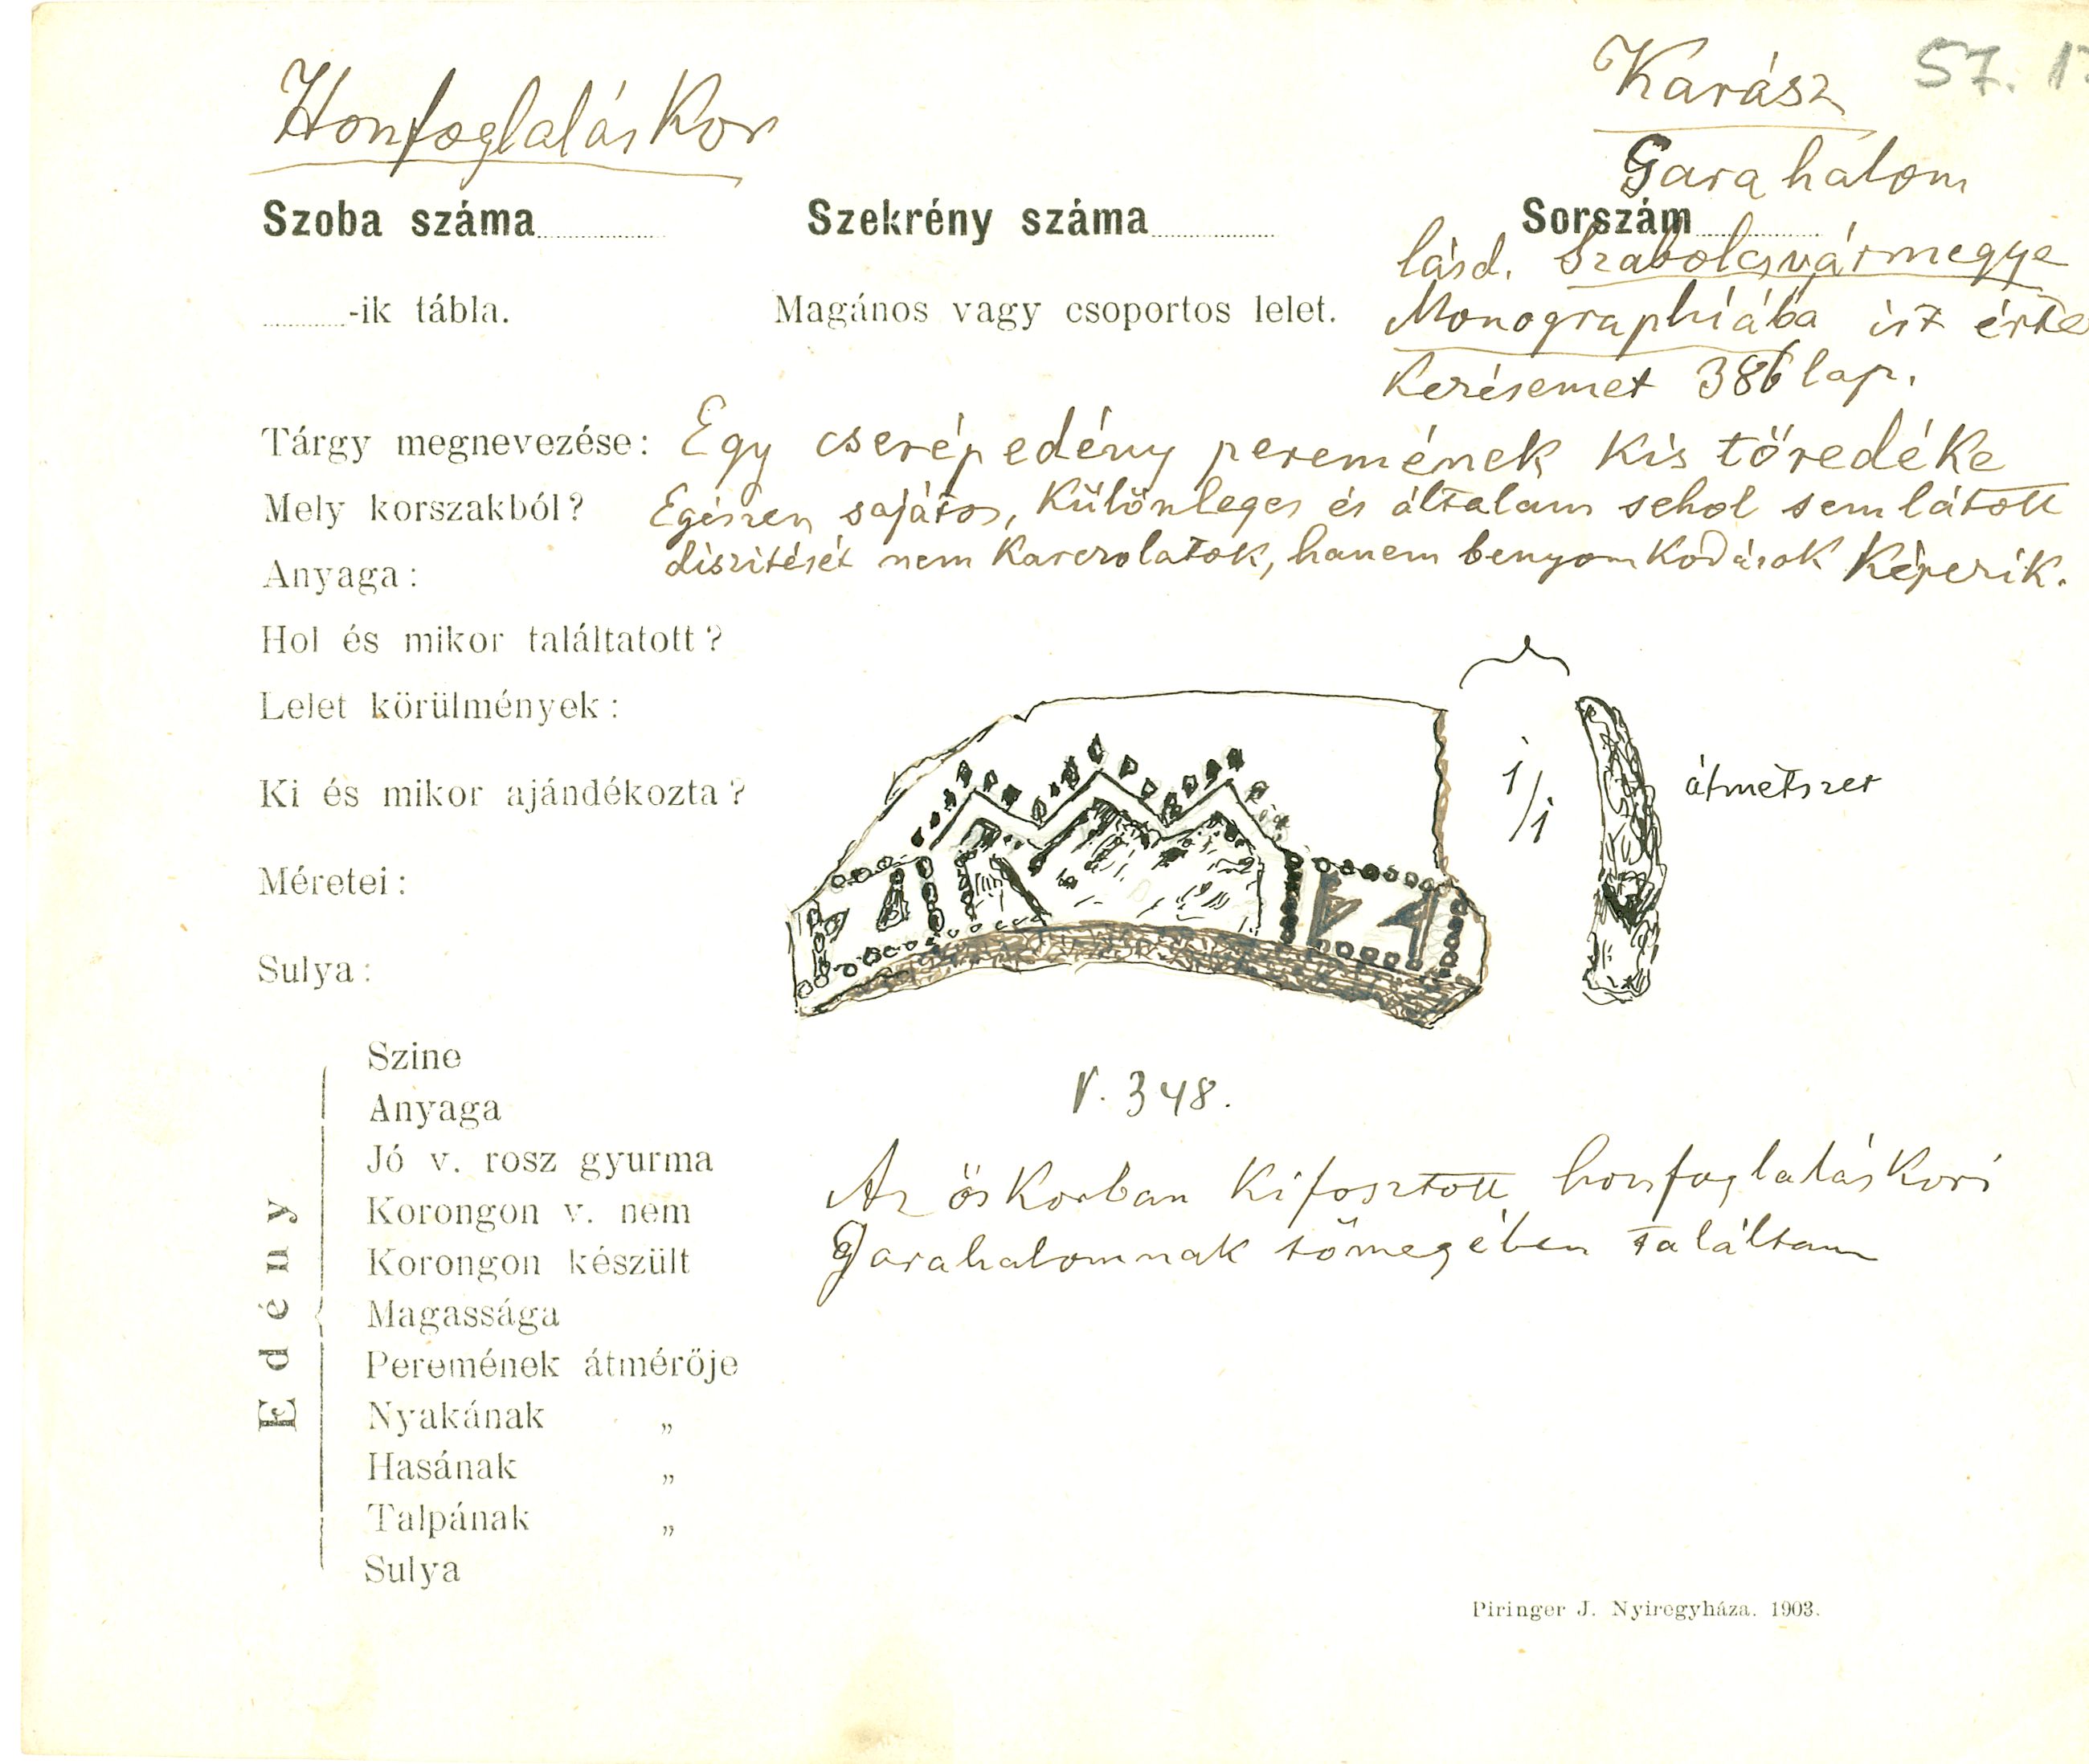 Honfoglalás Kor
Karász
57. 1
Garahalom
Szoba száma
Szekrény száma
Sorszám
lásd. Szabolcsvármegye
-ik tábla.
Magános vagy csoportos lelet.
Monographiába irt érte
Kezésemet 386 lap.
Tárgy megnevezése: Egy cserép edény peremének Kis töredéke
Mely korszakból? Egészen sajátos, Különleges és általam sehol sem látott
diszitését nem Karczolatok, hanem benyomKodások Képezik.
Anyaga:
Hol és mikor találtatott?
Lelet körülmények:
1/1
átmetszet
Ki és mikor ajándékozta?
Méretei:
Sulya:
Edény
Szine
V. 348.
Anyaga
Jó v. rosz gyurma
Az ősKorban Kifosztott honfoglalásKori
Korongon v. nem
Garahalomnak tömegében találtam
Korongon készült
Magassága
Peremének átmérője
Nyakának „
Hasának „
Talpának „
Sulya
Piringer J. Nyiregyháza. 1903.